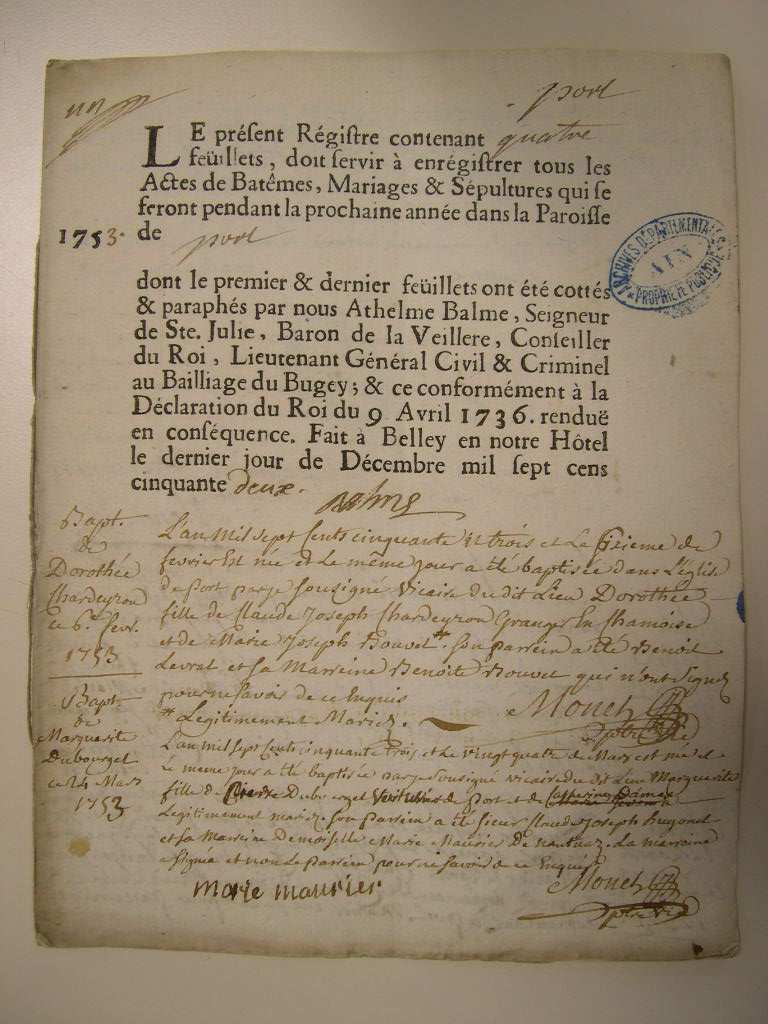 un
port
LE présent Régistre contenant quatre
feüillets, doit servir à enrégistrer tous les
Actes de Batêmes, Mariages & Sépultures qui se
feront pendant la prochaine année dans la Paroisse
1753. de port
ARCHIVES DÉPARTEMENTALES
AIN
PROPRIÉTÉ PUBLIQUE
dont le premier & dernier feüillets ont été cottés
& paraphés par nous Athelme Balme, Seigneur
de Ste. Julie, Baron de la Veillere, Conseiller
du Roi, Lieutenant Général Civil & Criminel
au Bailliage du Bugey; & ce conformément à la
Déclaration du Roi du 9 Avril 1736. renduë
en conséquence. Fait à Belley en notre Hôtel
le dernier jour de Décembre mil sept cens
cinquante deux. Balme
Bapt.
de
Dorothée
Chardeyron
ce 6e fevr.
1753
L'an Mil sept cents cinquante et trois et Le sixieme de
fevrier Est née et Le même jour a été baptisée dans L'église
de port par je soussigné vicaire du dit Lieu Dorothée
fille de Claude Joseph Chardeyron Granger En Chamoise
et de Marie Joseph Bouvet # son parrein a été Benoit
Levrat et sa Marreine Benoite Bouvet qui n'ont signez
pour ne savoir de ce Enquis
# Legitimement Mariez. Monet
ptre vic
Bapt.
de
Marguerite
Dubourget
ce 24 Mars
1753
L'an Mil sept Cents cinquante trois et Le vingt quatre de Mars est née et
Le meme jour a été baptisée par je soussigné vicaire du dit Lieu Marguerite
fille de pierre Dubourget de port et de Catherine
Legitimement mariez. son parrein a été sieur Claude Joseph Hugonet
et sa Marreine Demoiselle Marie Maurier De nantua. La marreine
a signé et non Le parrein pour ne savoir de ce Enquis
marie maurier Monet
ptre vic